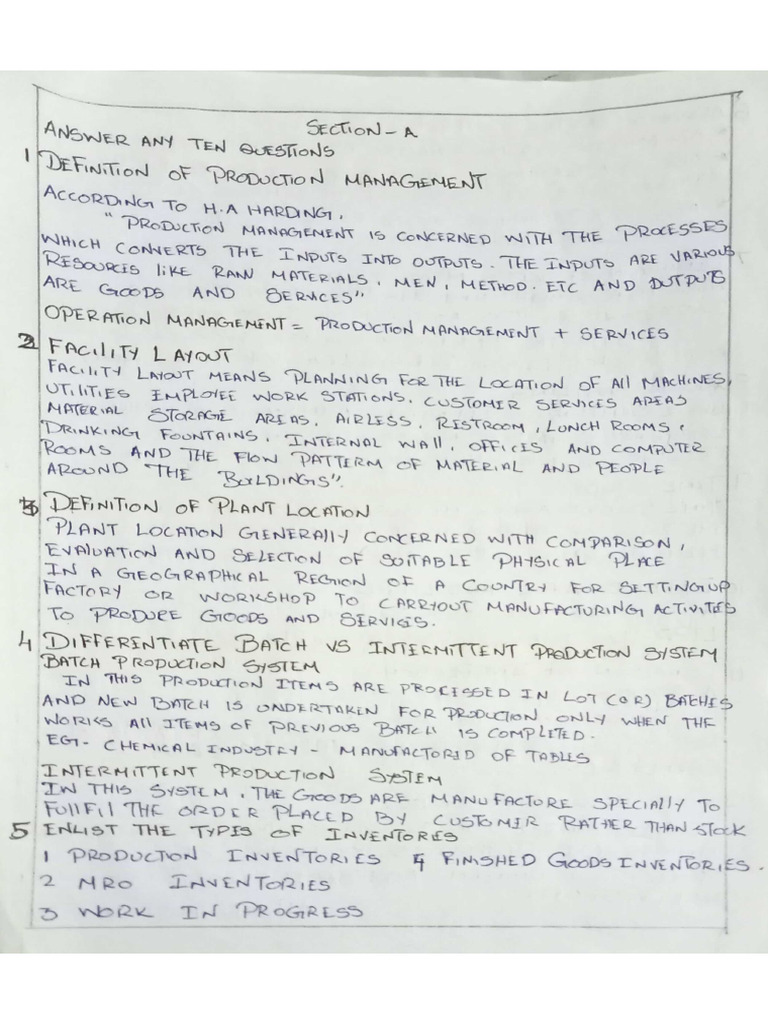 SECTION-A
ANSWER ANY TEN QUESTIONS
1 DEFINITION OF PRODUCTION MANAGEMENT
ACCORDING TO H.A HARDING,
"PRODUCTION MANAGEMENT IS CONCERNED WITH THE PROCESSES
WHICH CONVERTS THE INPUTS INTO OUTPUTS. THE INPUTS ARE VARIOUS
RESOURCES LIKE RAW MATERIALS, MEN, METHOD. ETC AND OUTPUTS
ARE GOODS AND SERVICES"
OPERATION MANAGEMENT = PRODUCTION MANAGEMENT + SERVICES
2 FACILITY LAYOUT
FACILITY LAYOUT MEANS PLANNING FOR THE LOCATION OF All MACHINES,
UTILITIES EMPLOYEE WORK STATIONS. CUSTOMER SERVICES AREAS
MATERIAL STORAGE AREAS, AIRLESS, RESTROOM, LUNCH ROOMS,
DRINKING FOUNTAINS, INTERNAL WALL, OFFICES AND COMPUTER
ROOMS AND THE FLOW PATTERM OF MATERIAL AND PEOPLE
AROUND THE BUILDINGS".
3 DEFINITION OF PLANT LOCATION
PLANT LOCATION GENERALLY CONCERNED WITH COMPARISON,
EVALUATION AND SELECTION OF SUITABLE PHYSICAL PLACE
IN A GEOGRAPHICAL REGION OF A COUNTRY FOR SETTING UP
FACTORY OR WORKSHOP TO CARRYOUT MANUFACTURING ACTIVITES
TO PRODURE GOODS AND SERVICES.
4 DIFFERENTIATE BATCH VS INTERMITTENT PRODUCTION SYSTEM
BATCH PRODUCTION SYSTEM
IN THIS PRODUCTION ITEMS ARE PROCESSED IN LOT (OR) BATCHES
AND NEW BATCH IS UNDERTAKEN FOR PRODUCTION ONLY WHEN THE
WORKS All ITEMS OF PREVIOUS BATCH IS COMPLETED.
EG:- CHEMICAL INDUSTRY - MANUFACTORID OF TABLES
INTERMITTENT PRODUCTION SYSTEM
IN THIS SYSTEM, THE GOODS ARE MANUFACTURE SPECIALLY TO
FULLFILL THE ORDER PLACED BY CUSTOMER RATHER THAN STOCK
5 ENLIST THE TYPES OF INVENTORES
1 PRODUCTION INVENTORIES 4 FINISHED GOODS INVENTORIES.
2 MRO INVENTORIES
3 WORK IN PROGRESS